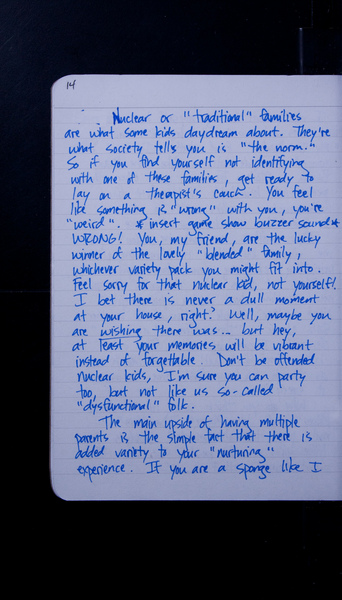 14
Nuclear or "traditional" families
are what some kids daydream about. They're
what society tells you is "the norm."
So if you find yourself not identifying
with one of these families, get ready to
lay on a therapist's couch. You feel
like something is "wrong" with you, you're
"weird". *insert game show buzzer sound*
WRONG! You, my friend, are the lucky
winner of the lovely "blended" family,
whichever variety pack you might fit into.
Feel sorry for that nuclear kid, not yourself!
I bet there is never a dull moment
at your house, right? Well, maybe you
are wishing there was... but hey,
at least your memories will be vibrant
instead of forgettable. Don't be offended
nuclear kids, I'm sure you can party
too, but not like us so-called
"dysfunctional" folk.
The main upside of having multiple
parents is the simple fact that there is
added variety to your "nurturing"
experience. If you are a sponge like I